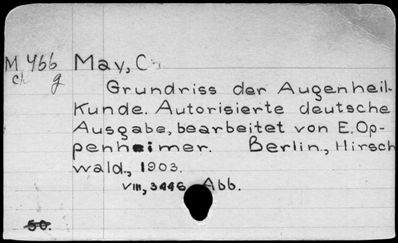 M 466 May, Ch
ch g Grundriss der Augenheil-
kunde. Autorisierte deutsche
Ausgabe, bearbeitet von E. Op-
penheimer. Berlin, Hirsch
wald., 1903.
VIII, 344 S. Abb.
50.